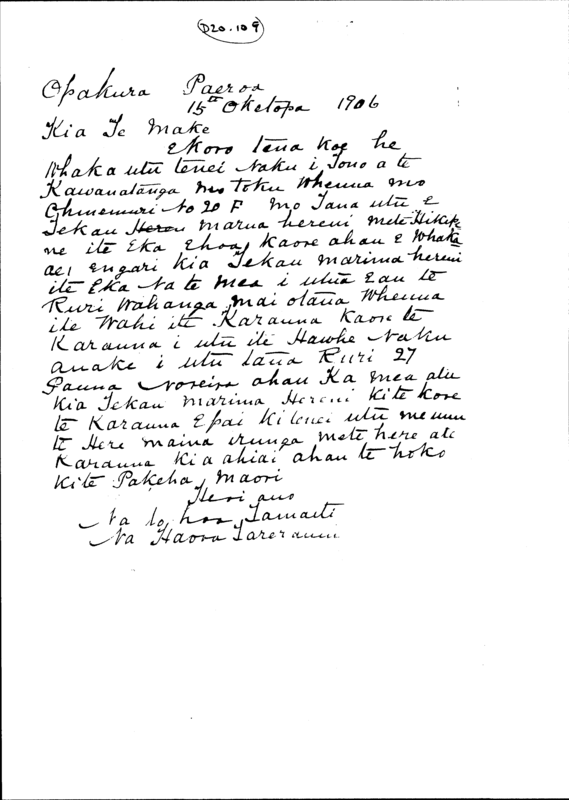 D20.109
Opakura Paeroa
15th Oketopa 1906
Kia Te Make
Ekoro tena koe he
Whaka utu tenei Naku i Tono a te
Kawanatanga mo toku Whenua mo
Ohinemuri No 20 F mo Tana utu E
Tekau Heren marua hereni mete Hikipe
ne ite Eka Ehoa, Kaore ahau E Whaka
ae, engari kia Tekau marima hereni
ite Eka Na te mea i utua Eau te
Ruri Wahanga mai otana Whenua
ite Wahi ite Karauna Kaore te
Karauna i utu ite Hawhe Naku
anake i utu tana Ruri 27
Pauna Noreira ahau Ka mea atu
kia Tekau marima Hereni Kite kore
te Karauna Epai Ki tenei utu me unu
te Here maina irunga mete here ate
Karauna Kia ahiai ahau te hoko
Kite Pakeha, Maori
Heoi ano
Na to hoa Tamaiti
Na Haora Tareranui